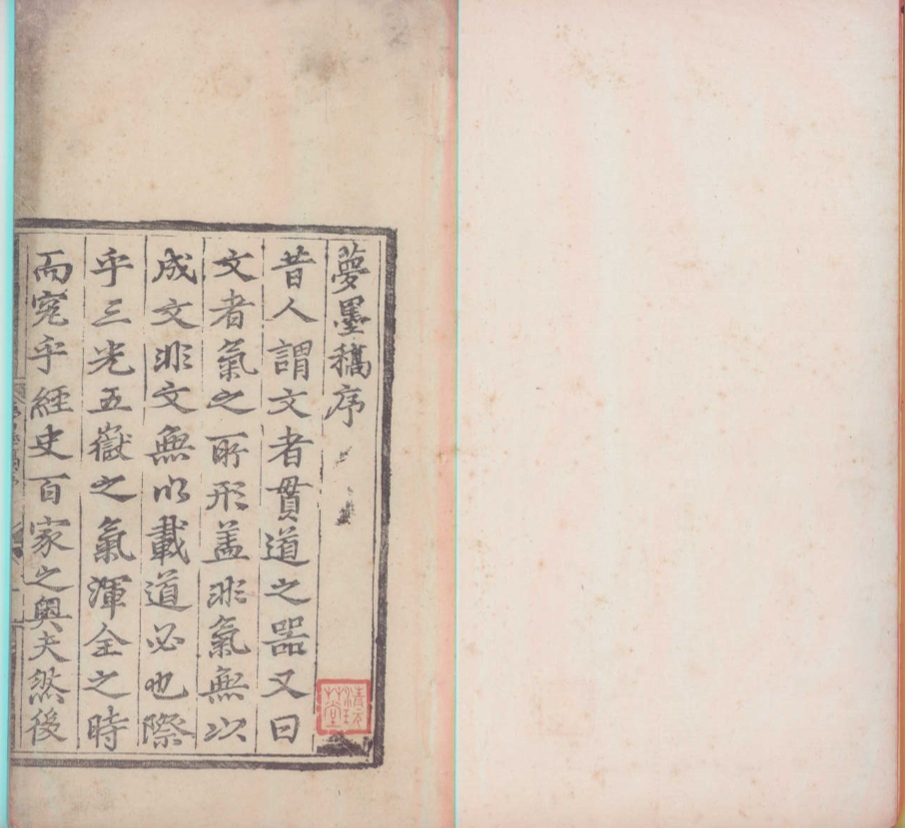 夢墨稿序
昔人謂文者貫道之器又曰
文者氣之所形盖非氣無以
成文非文無以載道必也際
乎三光五嶽之氣渾全之時
而究乎經史百家之奥夫然後